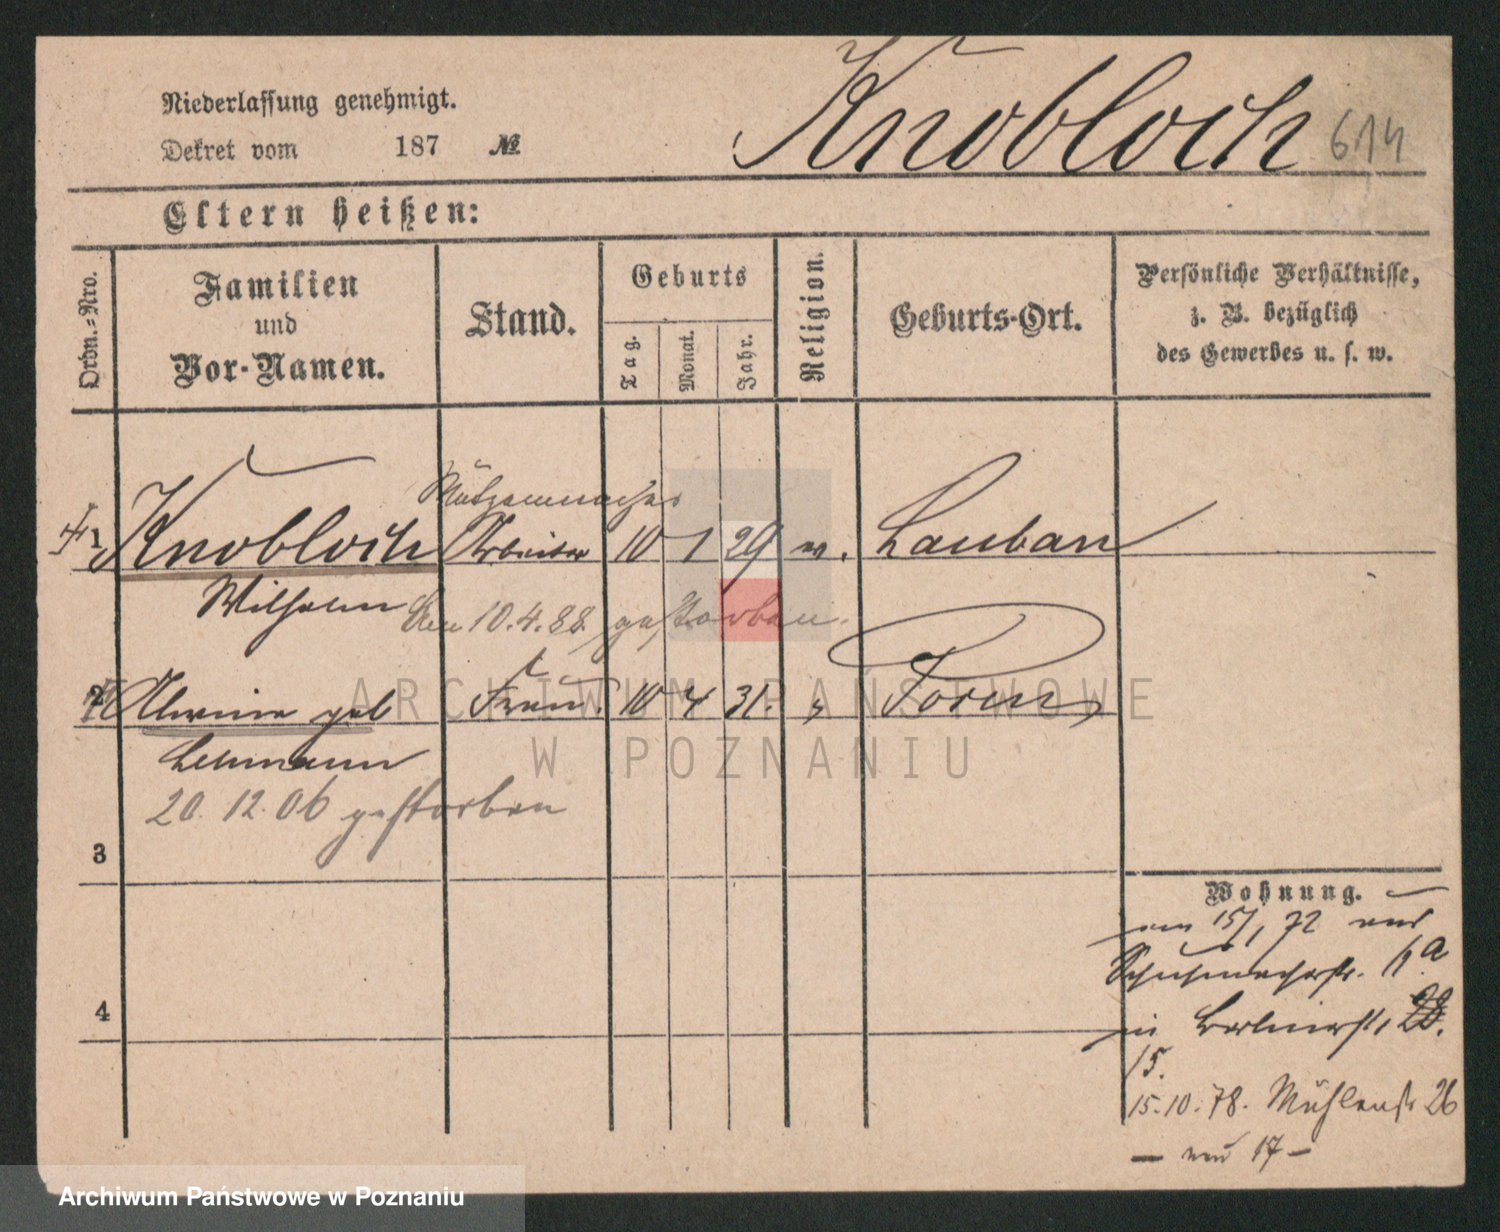 Knobloch 614
Niederlassung genehmigt.
Dekret vom 187 №
Eltern heißen:
Ordn.-Nro.
Familien
und
Vor-Namen.
Stand.
Geburts
Tag.
Monat.
Jahr.
Religion.
Geburts-Ort.
Persönliche Verhältnisse,
z. B. bezüglich
des Gewerbes u. s. w.
Mützenmacher
1 Knobloch Arbeiter 10 1 29 ev. Lauban
Wilhelm
Am 10.4.88. gestorben.
2 Alwine geb Frau. 10 4 31. " Posen
Lehmann
20.12.06 gestorben
3
4
Wohnung.
am 15/1 72 aus
Schuhmacherstr. 11a
in Berlinerstr. 28.
15.
15.10.78. Mühlenstr 26
— neu 17 —
ARCHIWUM PAŃSTWOWE
W POZNANIU
Archiwum Państwowe w Poznaniu